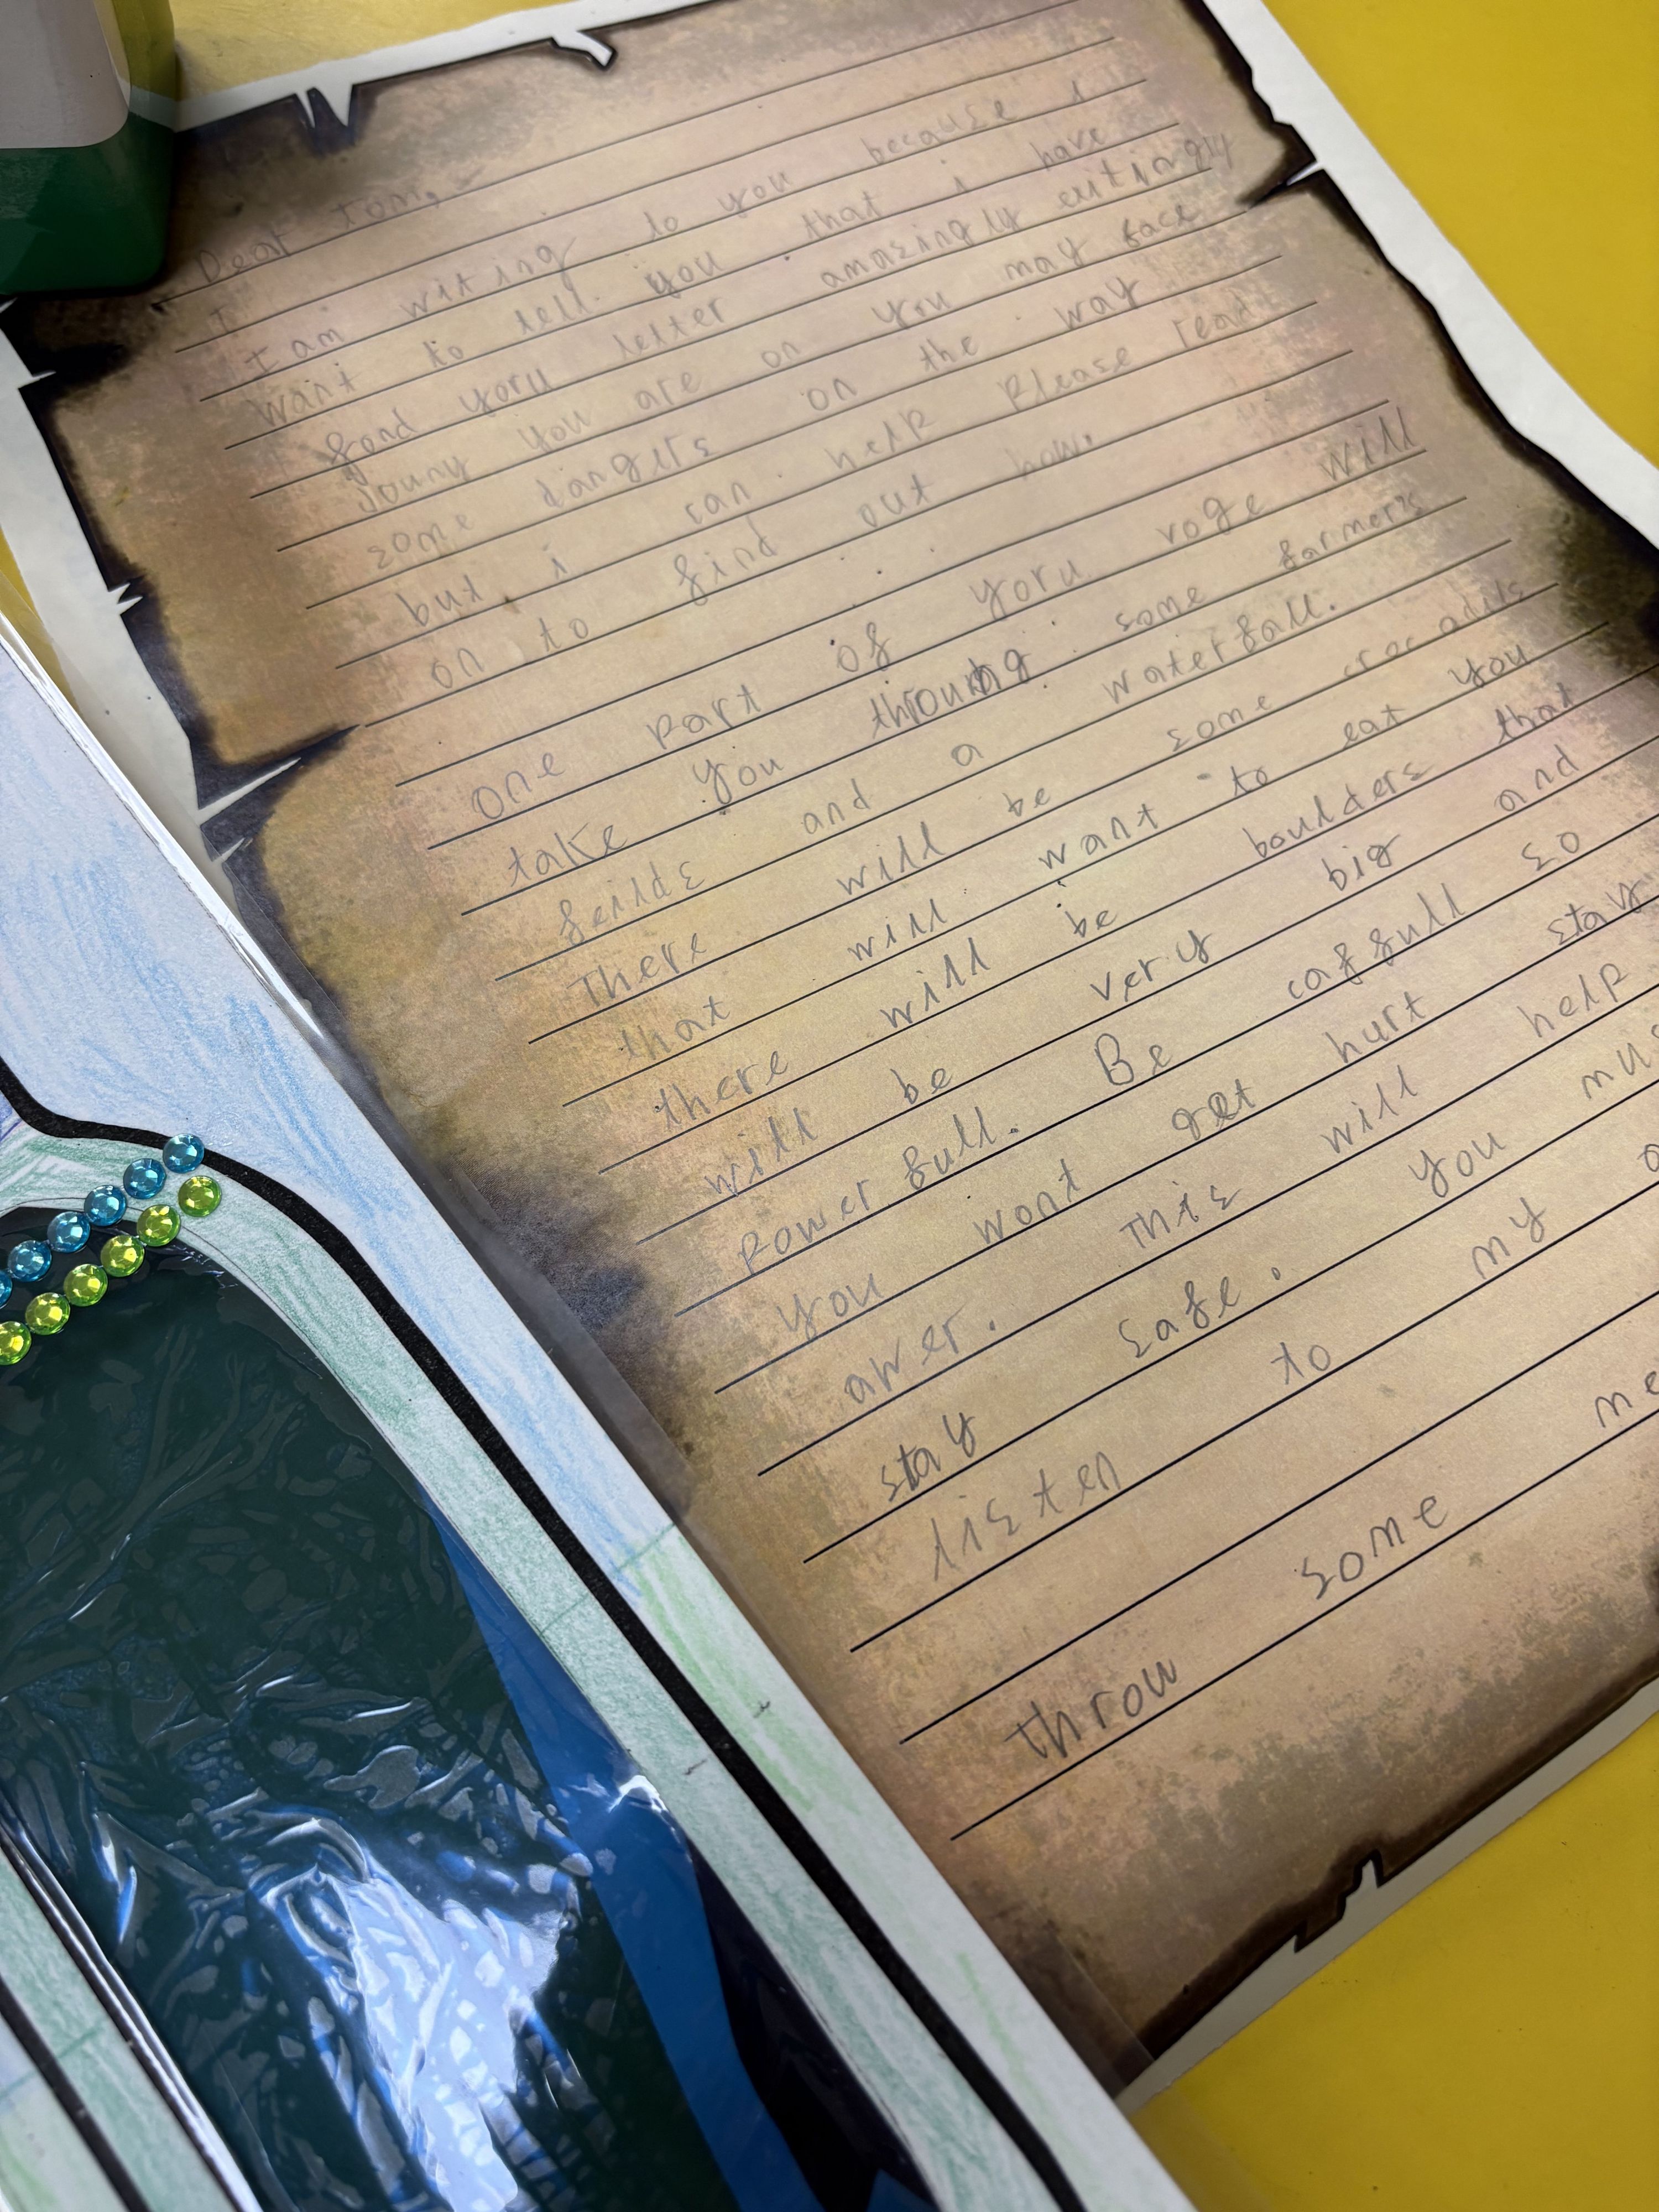 Dear Tom,
I
I am witing to you because i
want to tell you that i have
fond yoru letter amazingly exitingly
jouny you are on you may face
some dangers on the way
but i can help Please read
on to find out how.
one part of yoru voge will
take you throuthg some farmers
feilds and a waterfall.
There will be some crocadils
that will want to eat you
there will be boulders that
will be very big and
powerfull. Be caffull so
you wont get hurt stay
awer. This will help
stay safe. you
listen to my
throw some